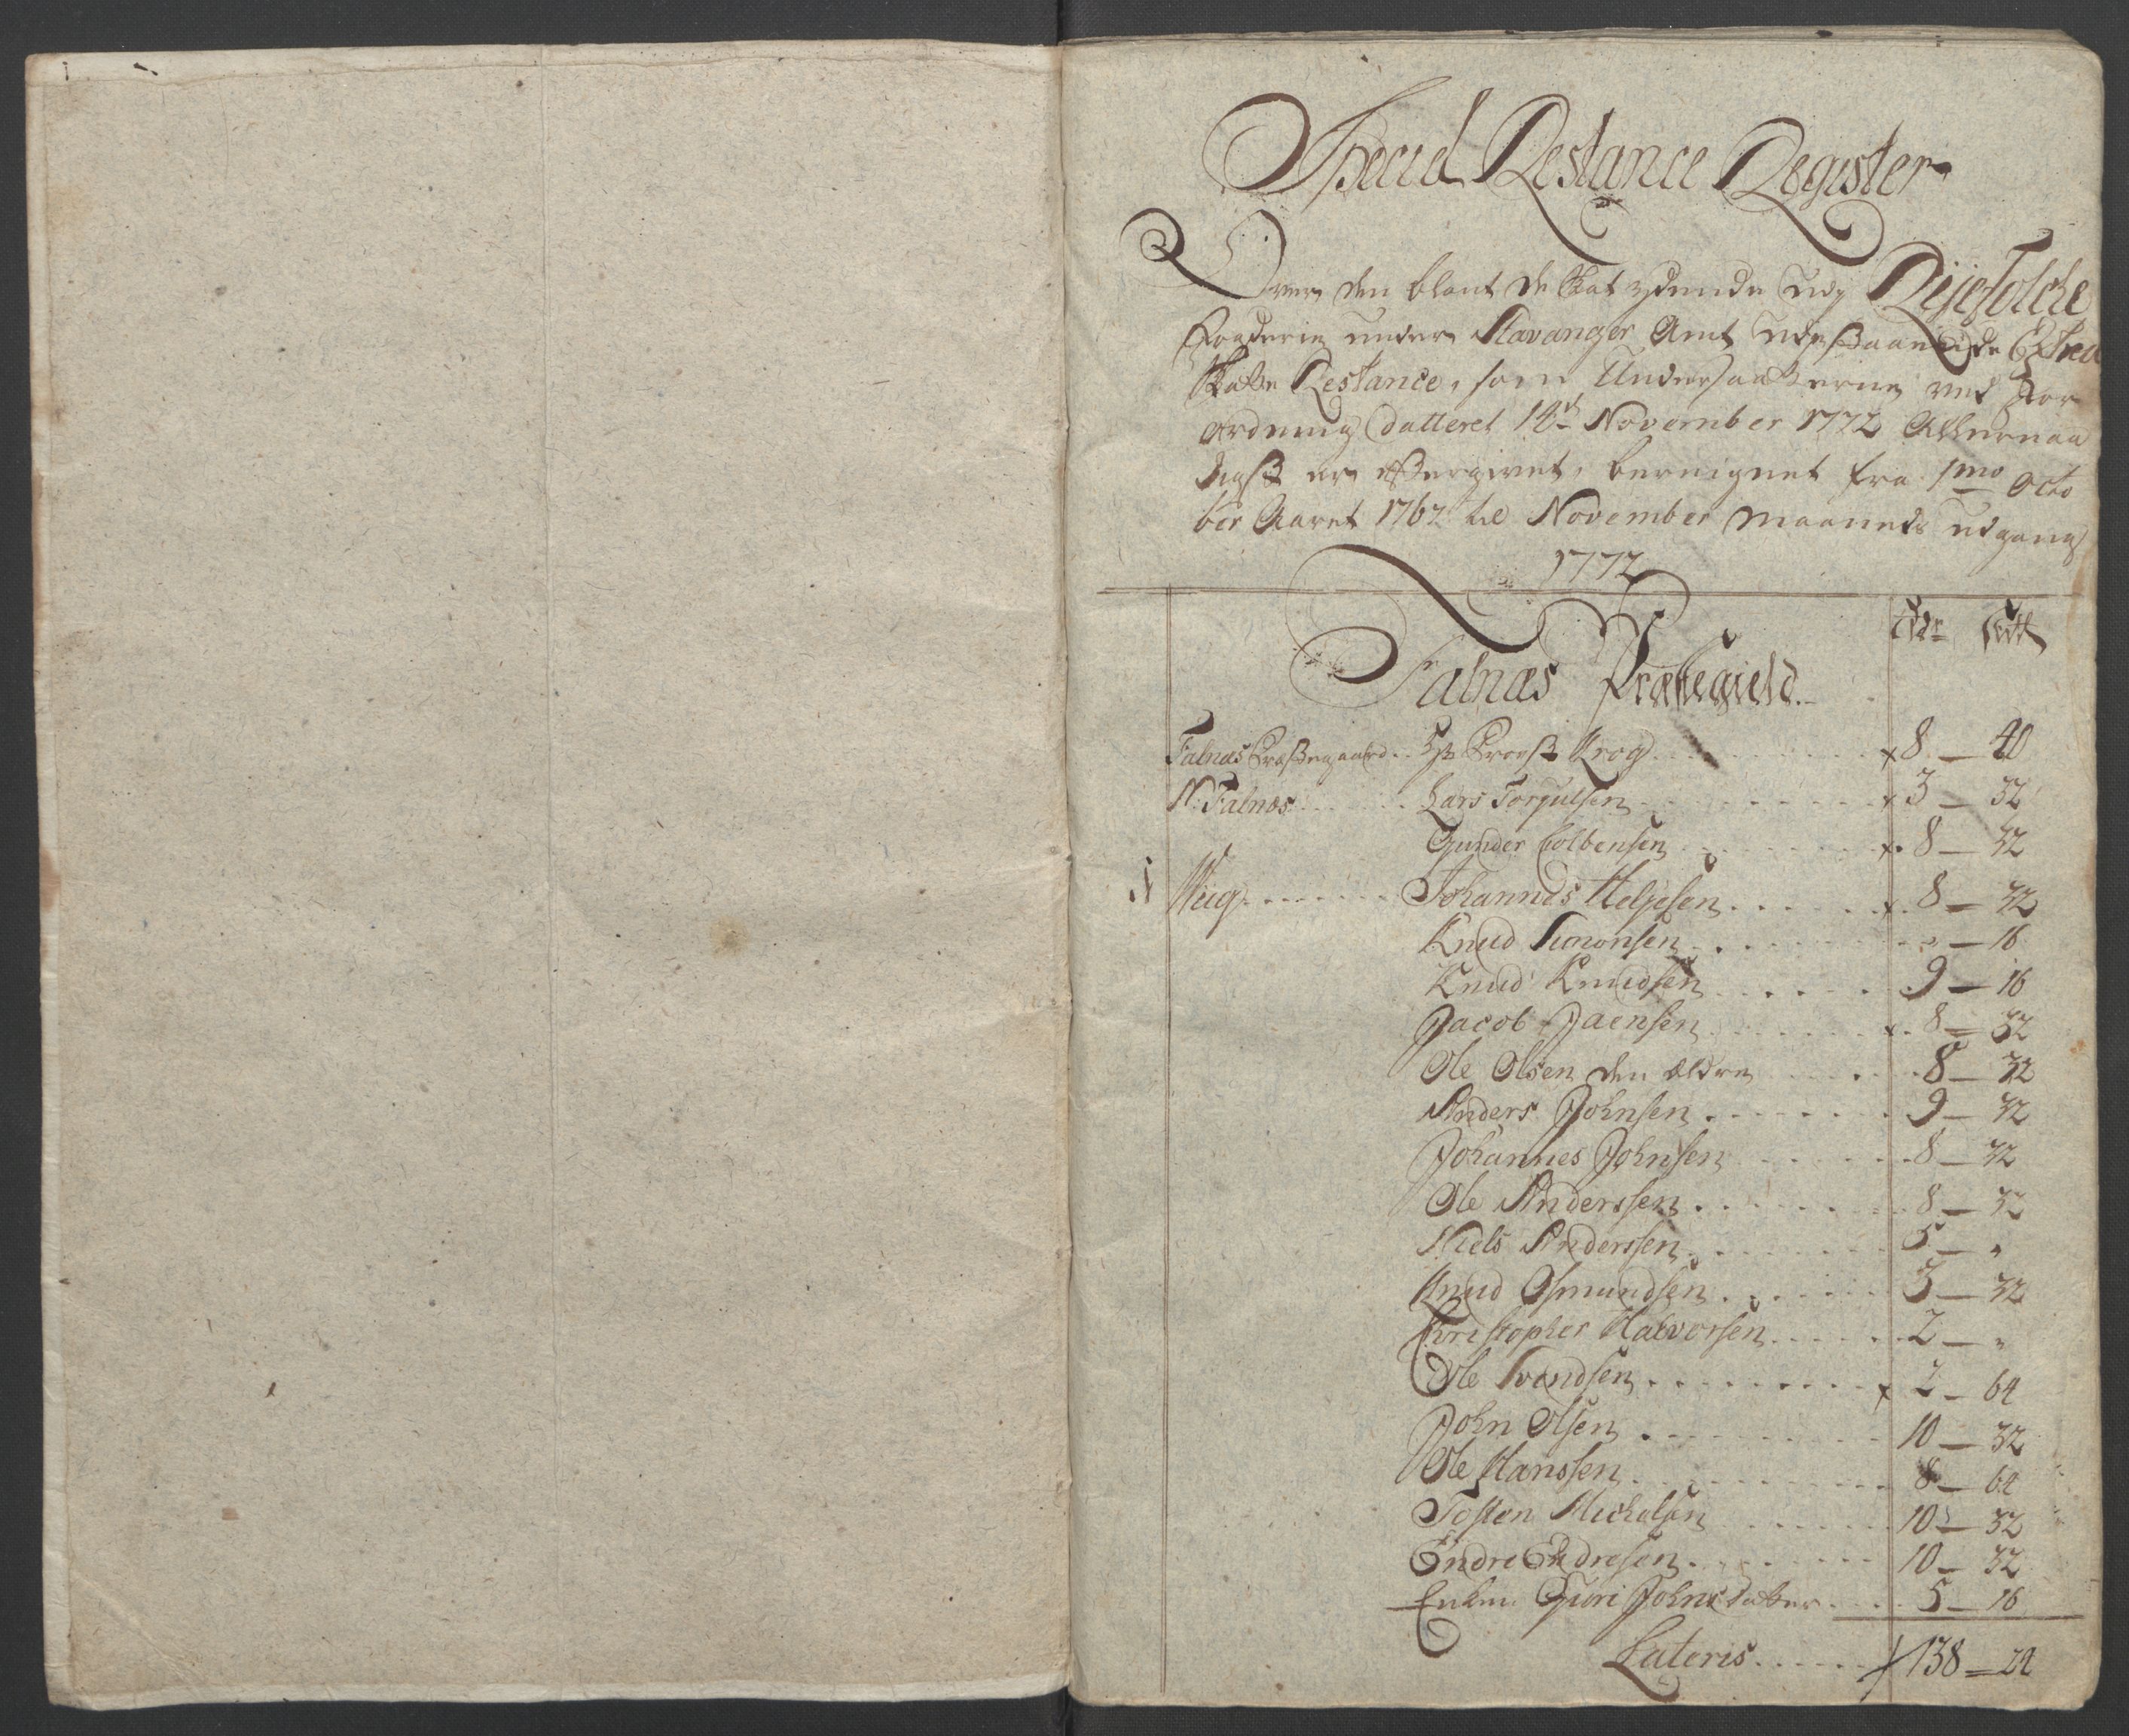 Speciel Restance Register
Over den blant de Skatydende udj Ryefölche
Fogderie under Stavanger Amt udestaaende Extra
Skatte Restance, som Undersaatterne ved For
ordning datteret 14de November 1772 Allernaa
digst er eftergivet, bereignet fra 1mo Octo
ber Aaret 1762 til November Maaneds udgang
1772
Rdr Skll
Falnæs Præstegield
Falnæs Præstegaard .. Hr Provst Krog x 8 — 40
N: Falnæs Lars Torgulsen x 3 — 32
Gunder Colbensen x 8 — 32
Johannes Helgesen x 8 — 32
Knud Simonsen " — 16
Knud Knudsen 9 — 16
Jacob Jaensen x 8 — 32
Ole Olsen den ældre 8 — 32
Anders Johnsen 9 — 32
Johannes Johnsen 8 — 32
Ole Anderssen 8 — 32
Niels Anderssen 5 — "
Knud Osmundsen 3 — 32
Christopher Halvorsen 2 — "
Ole Svendsen x 2 — 64
John Olsen 10 — 32
Ole Hanssen 8 — 64
Tosten Michelsen 10 — 32
Endre Endresen 10 — 32
Enken Guri Johnsdatter 5 — 16
Lateris 138 — 24